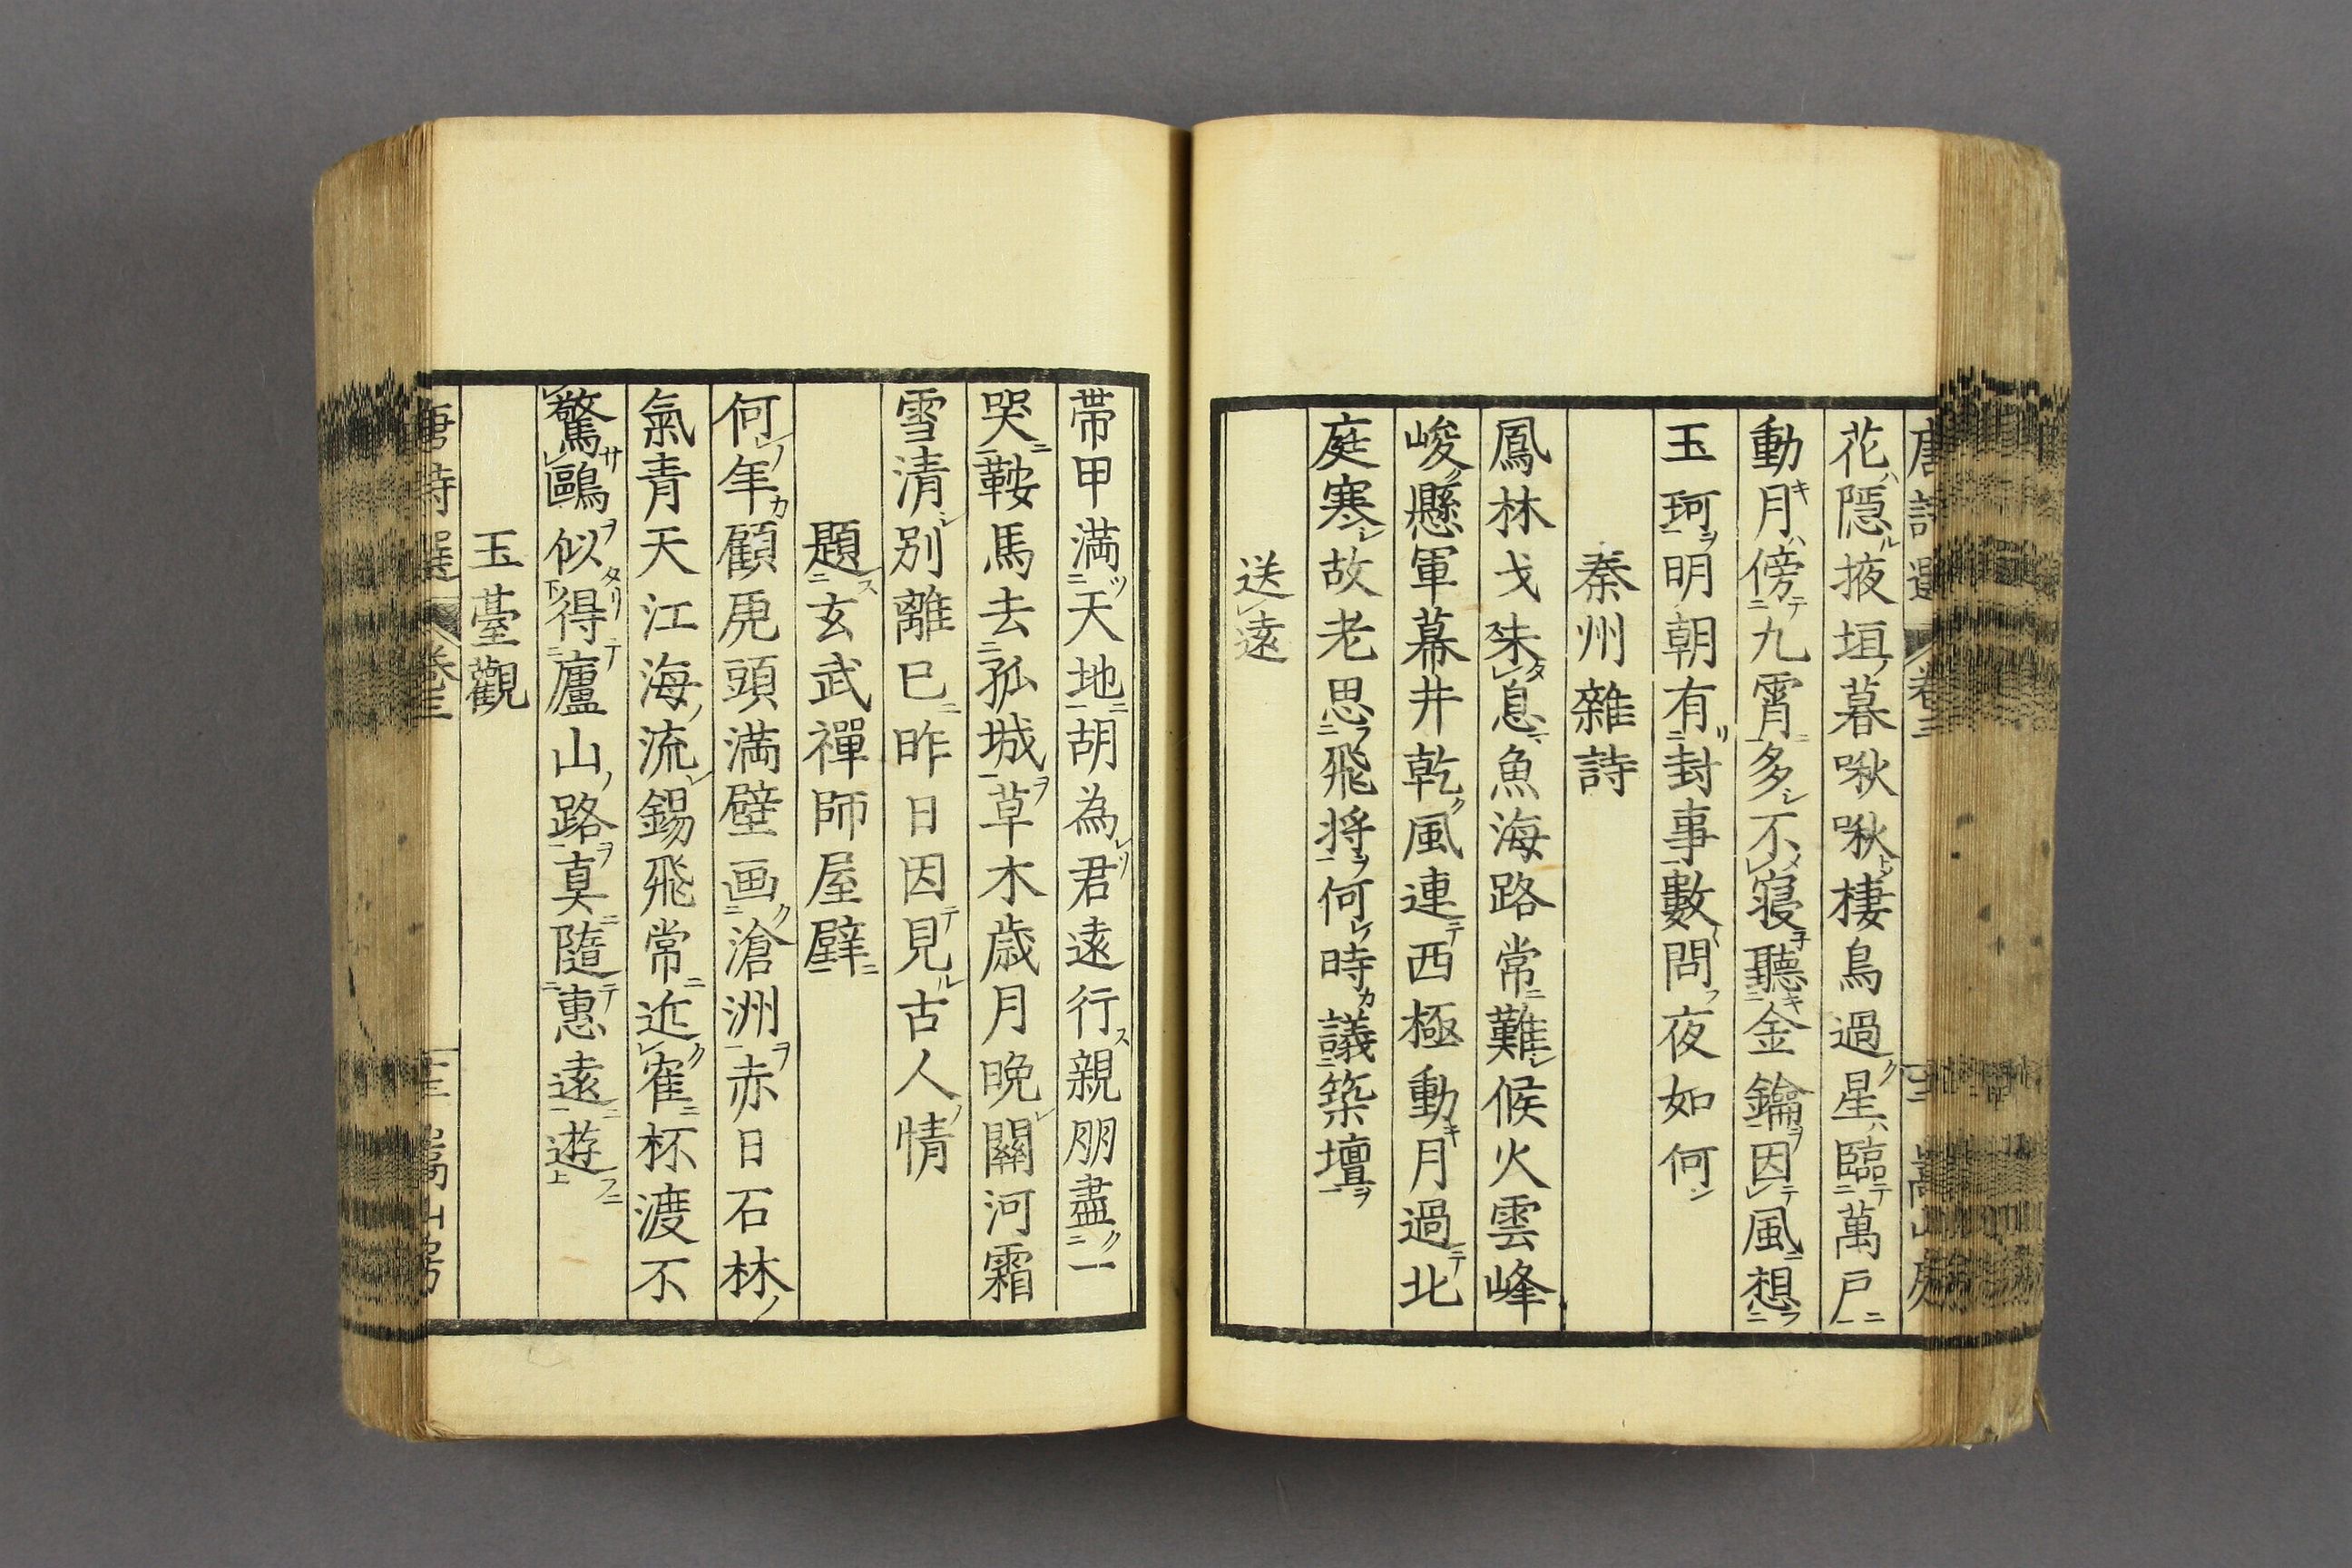 唐詩選 卷三 嵩山房
花隱掖垣暮啾啾棲鳥過星臨萬戸
動月傍九霄多不寢聽金鑰因風想
玉珂明朝有封事數問夜如何
秦州雜詩
鳳林戈未息魚海路常難候火雲峰
峻懸軍幕井乾風連西極動月過北
庭寒故老思飛將何時議築壇
送遠
帶甲滿天地胡為君遠行親朋盡一
哭鞍馬去孤城草木歳月晩關河霜
雪清別離已昨日因見古人情
題玄武禪師屋壁
何年顧虎頭滿壁画滄洲赤日石林
氣青天江海流錫飛常近寉杯渡不
驚鷗似得廬山路真隨惠遠遊
玉臺觀
唐詩選 卷三 嵩山房